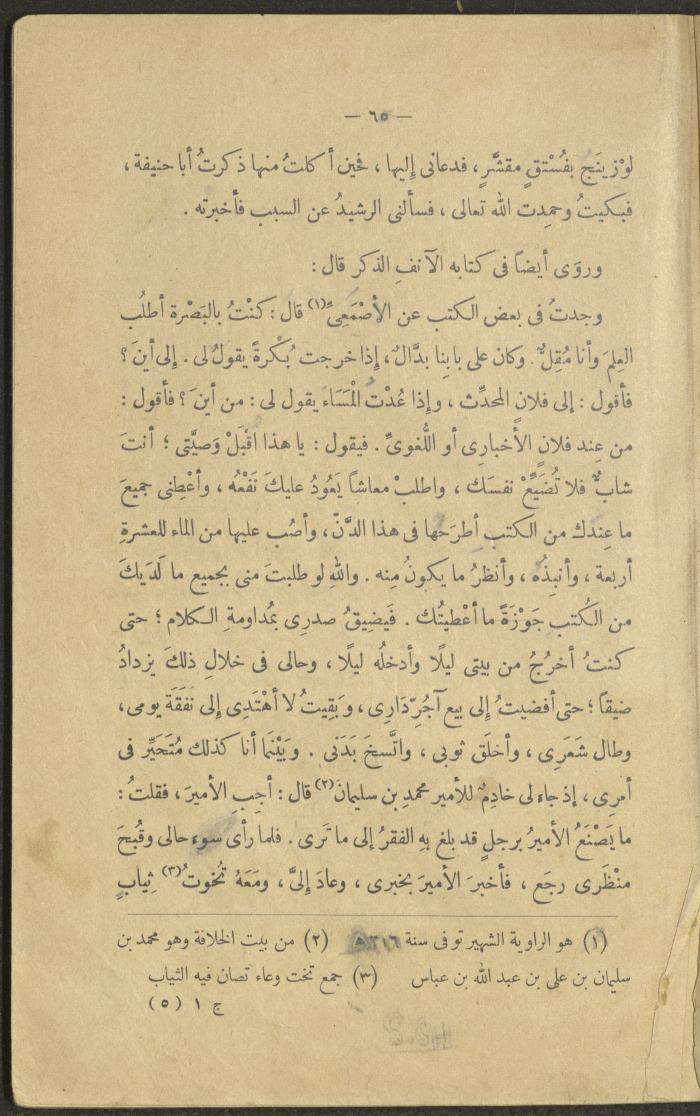 — ٦٥ —
لَوْزِينَجٍ بِفُسْتقٍ مقشَّرٍ ، فدعانى إليها ، فحين أكلتُ منها ذكرتُ أبا حنيفة ،
فبكيتُ وحمِدت الله تعالى ، فسألنى الرشيدُ عن السبب فأخبرته .
وروَى أيضاً فى كتابه الآنفِ الذكر قال :
وجدتُ فى بعض الكتب عن الأصْمَعِىّ(١) قال : كنْتُ بالبَصْرة أطلُب
العِلمَ وأنا مُقِلٌّ . وكان على بابِنا بدَّالٌ ، إذا خرجت بُكْرةً يقولُ لى . إلى أينَ ؟
فأقول : إلى فلانٍ المحدِّث ، وإذا عُدْتُ الْمَسَاءَ يقول لى : من أينَ ؟ فأقول :
من عِند فلانٍ الأخبارى أو اللُّغوىِّ . فيقول : يا هذا اقْبَلْ وَصيَّتى ؛ أنتَ
شابٌّ فلا تُضَيِّعْ نفسَك ، واطلبْ معاشاً يَعُودُ عليكَ نَفْعُه ، وأعْطِنى جميعَ
ما عِندك من الكتب أطرَحُها فى هذا الدَّنِّ ، وأصُب عليها من الماء للعشرةِ
أربعة ، وأنبِذُه ، وأنظرُ ما يكونُ مِنه . واللهِ لو طلبتَ منى بجميع ما لَدَيكَ
من الكُتب جَوْزَةً ما أعْطيتُك . فَيضِيقُ صدرِى بمُداومةِ الكلام ؛ حتى
كنتُ أخرُجُ من بيتى ليلًا وأدخلُه ليلًا ، وحالى فى خلالِ ذلكَ يزدادُ
ضيقاً ؛ حتى أفضيتُ إلى بيع آجُرِّ دَارِى ، وبَقِيتُ لا أهْتَدِى إلى نفَقَة يومى ،
وطال شَعَرِى ، وأخلَق ثوبى ، واتَّسخَ بَدَنى . وبَيْنَمَا أنا كذلك مُتَحَيِّر فى
أمرِى ، إذ جاء لى خادِمٌ للأمير محمدِ بن سليمانَ(٢) قال : أجِبِ الأميرَ ، فقلتُ :
ما يَصْنَعُ الأميرُ برجلٍ قد بلغ بِهِ الفقرُ إلى ما تَرى . فلما رأى سوء حالى وقُبحَ
منْظَرى رجَع ، فأخبرَ الأميرَ بخبرى ، وعادَ إلىَّ ، ومَعَهُ تُخوتُ(٣) ثِيابٍ
(١) هو الراوية الشهير توفى سنة ٢١٦ ه (٢) من بيت الخلافة وهو محمد بن
سليمان بن على بن عبد الله بن عباس (٣) جمع تخت وعاء تصان فيه الثياب
ج ١ (٥)